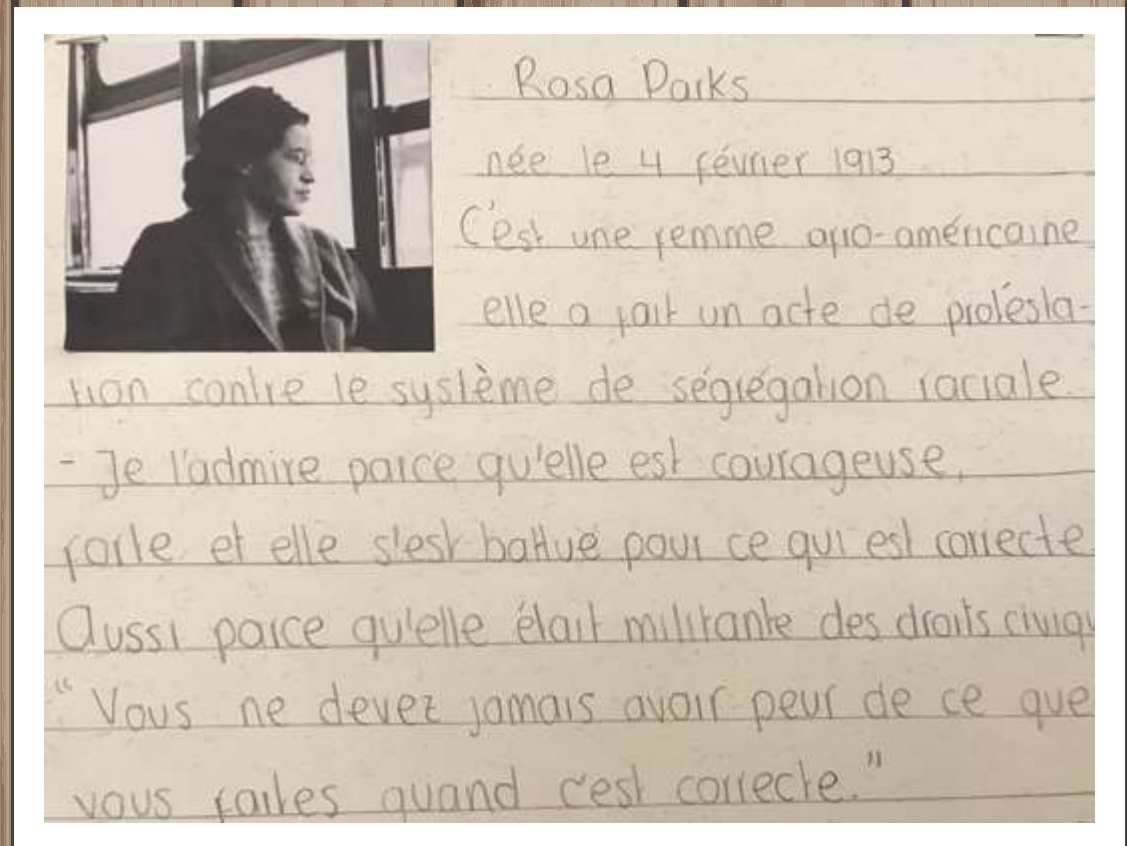 Rosa Parks
née le 4 février 1913
C'est une femme afro-américaine
elle a fait un acte de protésta-
tion contre le système de ségrégation raciale.
- Je l'admire parce qu'elle est courageuse,
forte et elle s'est battue pour ce qui est correcte
Aussi parce qu'elle était militante des droits civiqu
"Vous ne devez jamais avoir peur de ce que
vous faites quand c'est correcte."